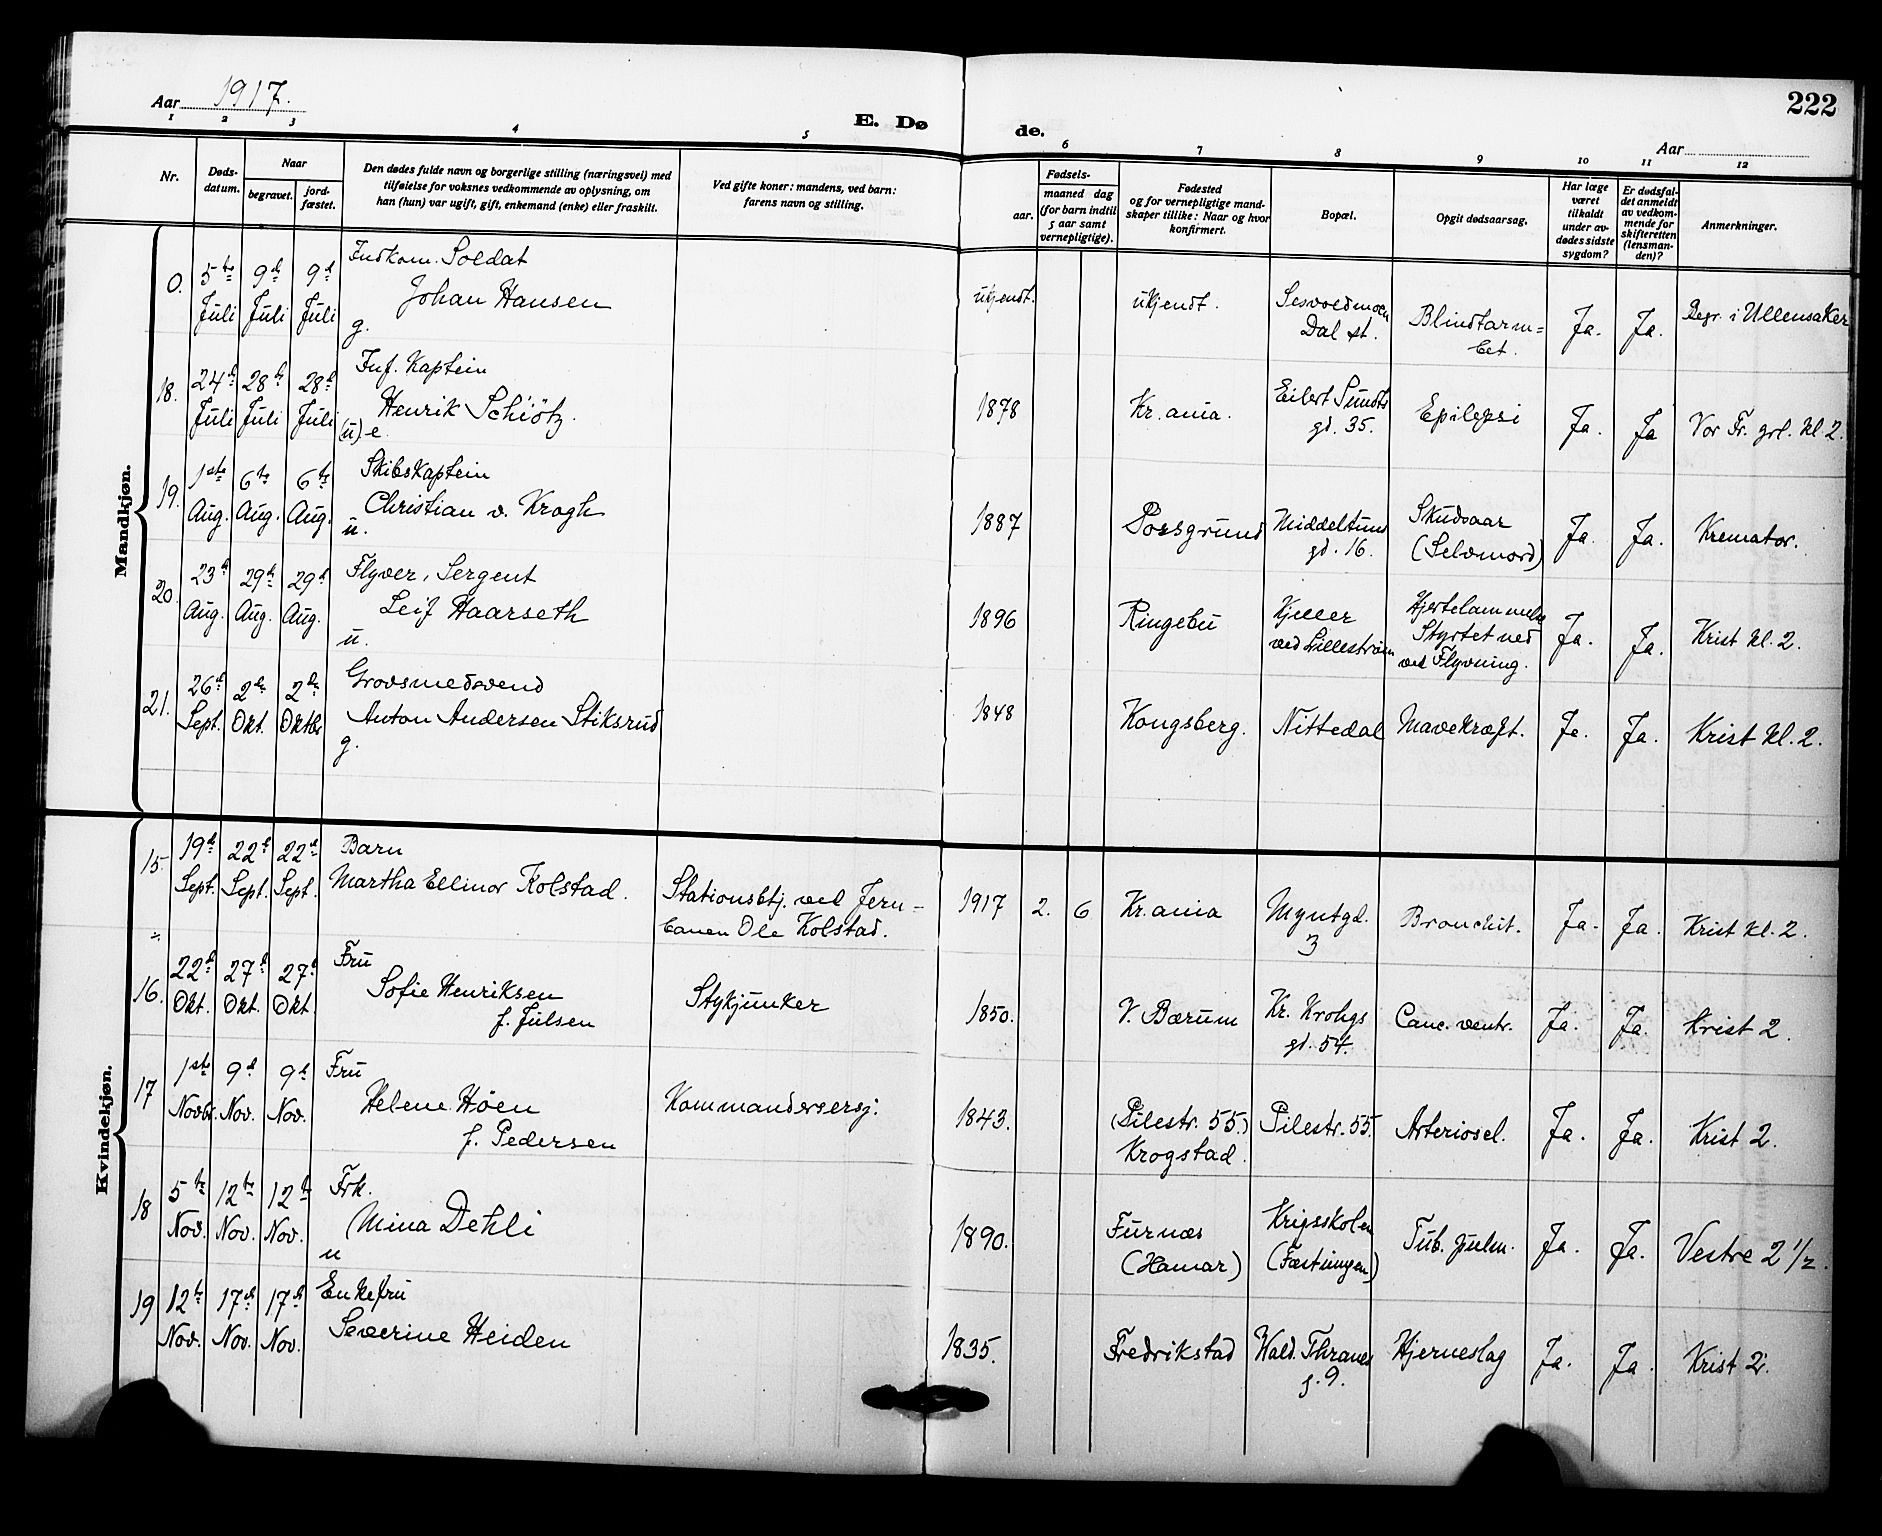 Aar 1917.
E. Døde.
Aar
222
1 2 3 4 5 6 7 8 9 10 11 12
Nr.
Dødsdatum.
Naar
begravet.
jordfæstet.
Den dødes fulde navn og borgerlige stilling (næringsvei) med
tilføielse for voksnes vedkommende av oplysning, om
han (hun) var ugift, gift, enkemand (enke) eller fraskilt.
Ved gifte koner: mandens, ved barn:
farens navn og stilling.
Fødsels-
aar.
maaned dag
(for barn indtil
5 aar samt
vernepligtige).
Fødested
og for vernepligtige mand-
skaper tillike: Naar og hvor
konfirmert.
Bopæl.
Opgit dødsaarsag.
Har læge
været
tilkaldt
under av-
dødes sidste
sygdom?
Er dødsfal-
det anmeldt
av vedkom-
mende for
skifteretten
(lensman-
den)?
Anmerkninger.
Mandkjøn.
0. 5te Juli 9d Juli 9d Juli
Indkom. Soldat
Johan Hansen
g.
ukjendt. ukjendt.
Sesvoldmoen
Dal st.
Blindtarm=
bet.
Ja. Ja. Begr. i Ullensaker
18. 24d Juli 28d Juli 28d Juli
Inf. Kaptein
Henrik Schiötz.
(u) e.
1878 Kr.ania.
Eilert Sundts
gd. 35.
Epilepsi Ja. Ja Vor Fr. grl. kl. 2.
19. 1ste Aug. 6te Aug. 6te Aug.
Skibskaptein
Christian v. Krogh
u.
1887 Porsgrund
Middeltuns
gd. 16.
Skudsaar
(Selvmord)
Ja. Ja. Kremator.
20. 23d Aug. 29d Aug. 29d Aug.
Flyver, Sergent
Leif Haarseth
u.
1896 Ringebu
Kjeller
ved Lillestrøm
Hjertelammelse
Styrtet ned
ved Flyvning.
Ja. Ja. Krist kl. 2.
21. 26d Sept. 2den Okt. 2den Oktbr
Grovsmedsvend
Anton Andersen Stiksrud
g.
1848 Kongsberg. Nittedal Mavekræft. Ja. Ja. Krist kl. 2.
Kvindekjøn.
15. 19d Sept. 22d Sept. 22d Sept.
Barn
Martha Ellinor Kolstad.
Stationsbtj. ved Jern-
banen Ole Kolstad.
1917 2. 6 Kr.ania
Myntgd.
3
Bronchit. Ja. Ja. Krist kl. 2.
16. 22d Okt. 27d Okt. 27d Okt.
Fru
Sofie Henriksen
f. Julsen
Stykjunker
1850. V. Bærum
Kr. Krohgs
gd. 54.
Canc. ventr. Ja. Ja. Krist 2.
17 1ste Novbr. 9d Nov. 9d Nov.
Fru
Helene Høen
f. Pedersen
Kommandersersj.
1843.
(Pilestr. 55.)
Krogstad.
Pilestr. 55. Arteriosel. Ja. Ja. Krist 2.
18 5te Nov. 12te Nov. 12te Nov.
Frk.
Mina Dehli
u
1890.
Furnæs
(Hamar)
Krigsskolen
(Fæstningen)
Tub. pulm. Ja. Ja. Vestre 2 1/2.
19 12te Nov. 17d Nov. 17d Nov.
Enkefru
Severine Heiden
1835. Fredrikstad
Wald. Thranes
g. 9.
Hjerneslag Ja. Ja. Krist 2.